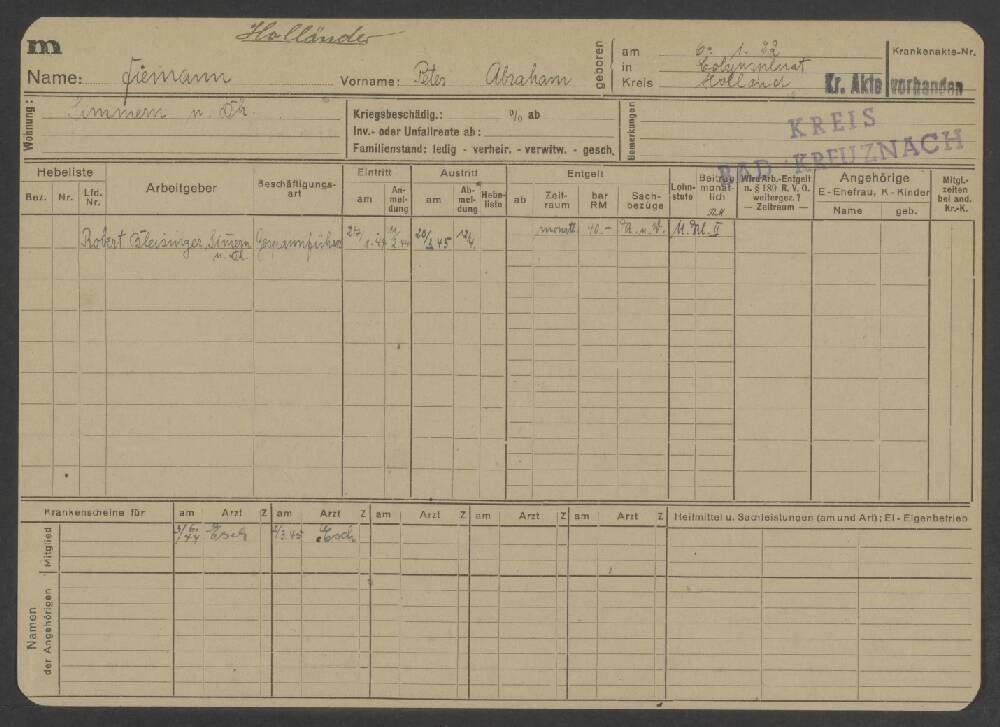 m
Holländer
Name: Tiemann Vorname: Peter Abraham
geboren am 6. 1. 22
in
Kreis Holland
Krankenakte-Nr.
Kr. Akte vorhanden
Wohnung: Simmern u. Dh.
Kriegsbeschädig.: % ab
Inv.- oder Unfallrente ab:
Familienstand: ledig - verheir. - verwitw. - gesch.
Bemerkungen
KREIS
BAD KREUZNACH
Hebeliste
Bez. Nr. Lfd. Nr.
Arbeitgeber
Beschäftigungs-
art
Eintritt
am An-
mel-
dung
Austritt
am Ab-
mel-
dung
Hebe-
liste
Entgelt
ab Zeit-
raum bar
RM Sach-
bezüge
Lohn-
stufe
Beitrag
monat-
lich
RM
Wird Arb.-Entgelt
n. § 189 R. V. O.
weitergez. ?
— Zeitraum —
Angehörige
E - Ehefrau, K - Kinder
Name geb.
Mitgl.-
zeiten
bei and.
Kr.-K.
Robert Simmern 20/3 45 monatl. 40.- K. u. W.
u. Dh.
Krankenscheine für am Arzt Z am Arzt Z am Arzt Z am Arzt Z am Arzt Z Heilmittel u. Sachleistungen (am und Art); Ei - Eigenbetrieb
Mitglied
Esch 2/3.45 Esch
Namen
der Angehörigen